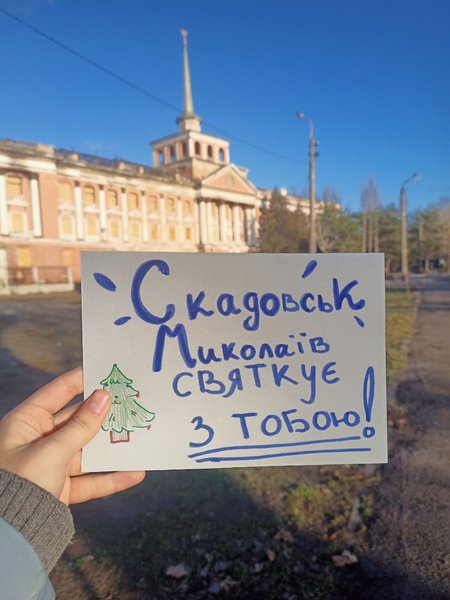 Скадовськ
Миколаїв
святкує
з тобою!